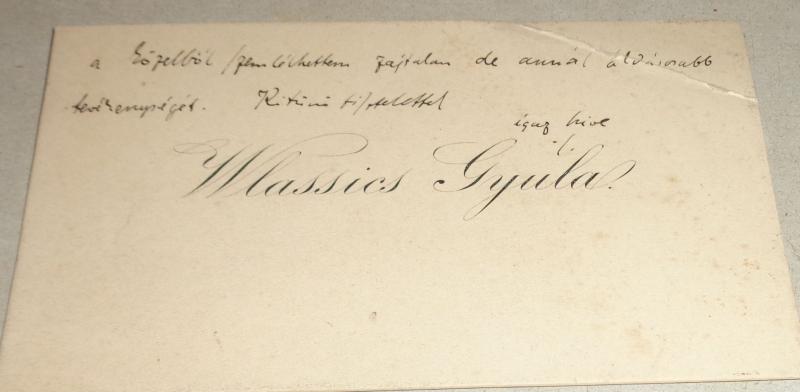 a közelből szemlélhettem zajtalan de annál áldásosabb
tevékenységét. Kitünő tisztelettel
igaz hive
Wlassics Gyula.